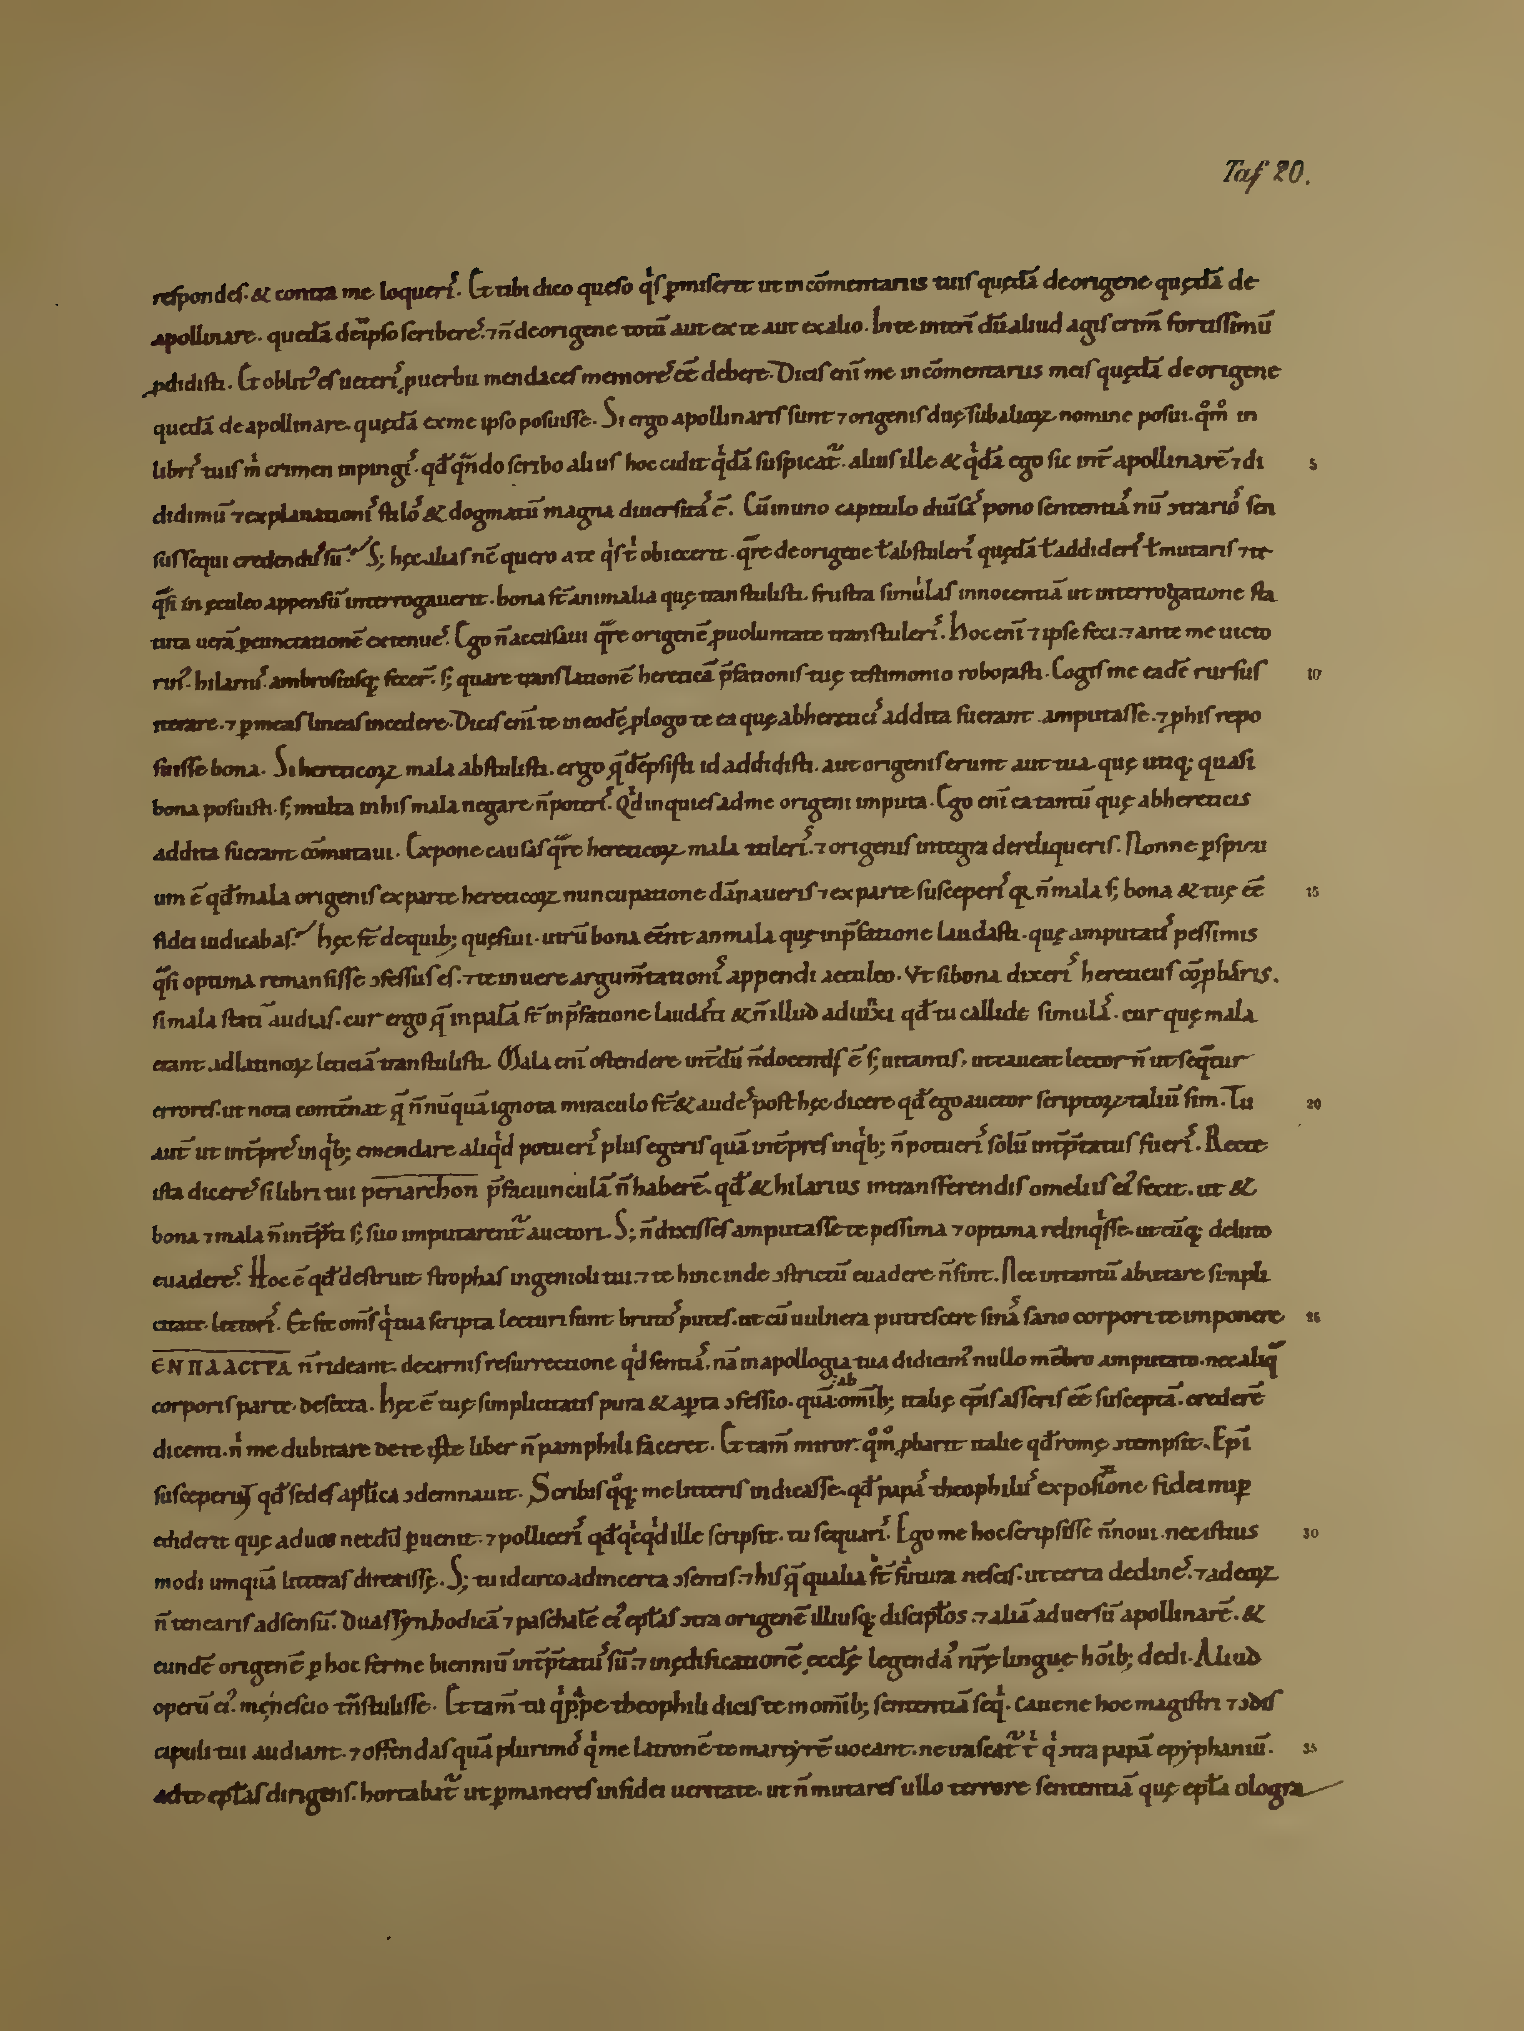 Taf 20.
respondes. & contra me loqueris. Et tibi dico queso q̍s p̱miserit ut in cōmentariis tuis quędā de origene quędā de
apollinare. quedā de ipso scriberes. ⁊ n̄ de origene totū aut ex te aut ex alio. In te interī dū aliud agis crim̄ fortissimū
ꝓdidisti. Et oblit᾽ es ueteris ꝓuerbii mendaces memores eē debere. Dicis enī me in cōmentariis meis quędā de origene
quedā de apollinare. quędā ex me ipso posuisse. Si ergo apollinaris sunt ⁊ origenis duę sub alioꝝ nomine posui. qͦm̊ in
libris tuis m̍ crimen inpingis. qd̄ qn̄do scribo alius hoc cidit q̍dā suspicat᷑. alius ille & q̍dā ego sic int̄ apollinarē ⁊ di
didimū ⁊ explanationis stilos & dogmatū magna diuersitas ē. Cū in uno capitulo diuīsas pono sententiā nū ɔtrarios sen
sus sequi credendus sū. S; hęc alias nc̄ quero a te q̍s t̍ obiecerit. qr̄e de origene ł abstuleris quędā ł addideris ł mutaris ⁊ te
qᷓsi in ęculeo appensū interrogauerit. bona st̄ an mala quę transtulisti. frustra simulas innocentiā ut interrogatione sta
tuta uerā ꝑcunctationē extenues. Ego n̄ accusaui qr̄e origenē ꝓ uoluntate transtuleris. Hoc enī ⁊ ipse feci. ⁊ ante me uicto
rin᾽. hilarius. ambrosiusq; fecer̄. s; quare translationē hereticā p̄fationis tuę testimonio roborasti. Cogis me eadē rursus
iterare. ⁊ ꝑ meas lineas incedere. Dicis enī te in eodē ꝓlogo te ea quę ab hereticis addita fuerant amputasse. ⁊ ꝓ his repo
suisse bona. Si hereticoꝝ mala abstulisti. ergo q̄ depsisti id addidisti. aut origenis erunt aut tua quę utiq; quasi
bona posuisti. s; multa in his mala negare n̄ poteris. Qd̍ inquies ad me origeni imputa. Ego enī ea tantū quę ab hereticis
addita fuerant cōmutaui. Expone causas qr̄e hereticoꝝ mala tuleris. ⁊ origenis integra dereliqueris. Nonne ꝑspicu
um ē qd̄ mala origenis ex parte hereticoꝝ nuncupatione dānaueris ⁊ ex parte susceperis n̄ mala s; bona & tuę eē
fidei iudicabas. hęc st̄ de quib; quęsiui. utrū bona eēnt an mala quę in p̄fatione laudasti. quę amputatis pessimis
qᷓsi optima remansisse ɔfessus es. ⁊ te in uere argum̄tationis appendi aculeo. Vt si bona dixeris hereticus
si mala statī audias. cur ergo q̄ in palā st̄ in p̄fatione laudasti & n̄ illud qd̄ tu callide simulas. cur quę mala
erant ad latinoꝝ leticiā transtulisti. Mala enī ostendere int̄dū n̄ docendis ē s; uitantis. ut caueat lector n̄ ut seq̄tur
errores. ut nota contēnat q̄ n̄nūquā ignota miraculo st̄ & audes post hęc dicere qd̄ ego auctor scriptoꝝ taliū sim. Tu
aut̄ ut int̄pres in q̍b; emendare aliq̍d potueris plus egeris quā int̄pres in q̍b; n̄ potueris solū int̄p̄tatus fueris. Recte
ista diceres si libri tui periarchon p̄faciunculā n̄ haberē. qd̄ & hilarius in transferendis omeliis ei᾽ fecit. ut &
bona ⁊ mala n̄ int̄p̄ti s; suo imputarent᷑ auctori. S; n̄ dixisses amputasse te pessima ⁊ optima relinq̍sse. ut cūq; de luto
euaderes. Hoc ē qd̄ destruit strophas ingenioli tui. ⁊ te hinc inde ɔstrictū euadere n̄ sint. Nec in tantū abutare simpli
citate lectoris. Et sic om̄s q̍ tua scripta lecturi sunt brutos putes. ut cū uulnera putrescere sinas sano corpori te imponere
ЄΝΠΛΑСΤΡΑ n̄ rideant. de carnis resurrectione q̍d sentias. nā in apollogia tua didicim᾽ nullo mēbro amputato. nec aliqᷓ
corporis parte desecta. Hęc ē tuę simplicitatis pura & aꝑta ɔfessio. quā ab om̄ib; italię epīs asseris eē susceptā. crederē
dicenti. n̍ me dubitare de te iste liber n̄ pamphili faceret. Et tam̄ miror. qͦm̊ ꝓbarit italie qd̄ romę ɔtempsit. Epī
susceperint qd̄ sedes aplīca ɔdemnauit. Scribis qͦq; me litteris indicasse. qd̄ papas theophilus expositione fidei nuꝑ
ediderit quę ad uos necdū ꝑuenit. ⁊ polliceris qd̄ q̍cq̍d ille scripsit. tu sequaris. Ego me hoc scripsisse n̄ noui. nec istius
modi umquā litteras direxisse. S; tu idcirco ad incerta ɔsentis. ⁊ his q̄ qualia st̄ futura nescis. ut certa declines. ⁊ ad eoꝝ
n̄ tenearis adsensū. Duas synhodicā ⁊ paschalē ei᾽ epl̄as ɔtra origenē illiusq; discipl̄os. ⁊ aliā aduersū apollinarē. &
eundē origenē ꝑ hoc ferme bienniū int̄p̄tatus sū. ⁊ in ędificationē ęccl̄ę legendas nr̄ę linguę hōib; dedi. Aliud
operū ei᾽. me nescio tn̄stulisse. Et tam̄ tu q̍ppe theophili dicis te in om̄ib; sententiā seq̍. Caue ne hoc magistri ⁊ ɔdis
cipuli tui audiant. ⁊ offendas quā plurimos q̍ me latronē te martyrē uocant. ne irascat᷑ t̍ q̍ ɔtra papā epyphaniū.
ad te epl̄as dirigens. hortabat᷑ ut ꝑmaneres in fidei ueritate. ut n̄ mutares ullo terrore sententiā quę epl̄a ologra
5
10
15
20
25
30
35